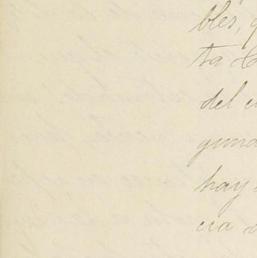 bles,
ta
del
guna
hay
cia